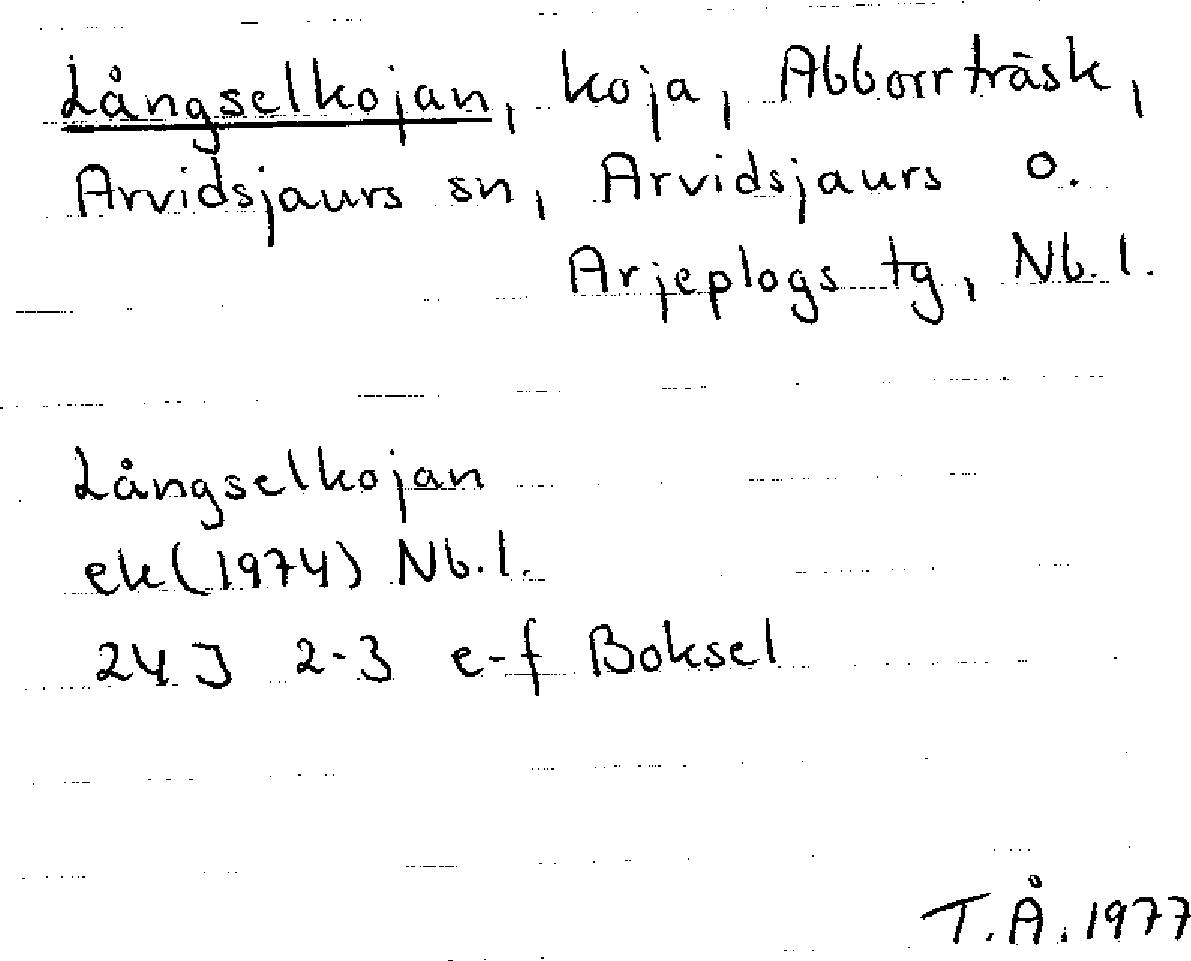 Långselkojan, koja, Abborrträsk,
Arvidsjaurs sn, Arvidsjaurs o.
Arjeplogs tg, Nb. l.
Långselkojan
ek (1974) Nb. l.
24J 2-3 e-f Boksel
T.Å. 1977